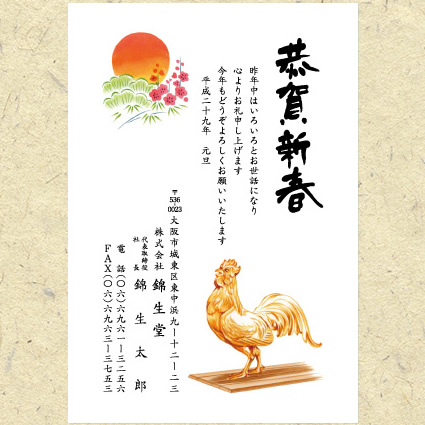 恭賀新春
昨年中はいろいろとお世話になり
心よりお礼申し上げます
今年もどうぞよろしくお願いいたします
平成二十九年　元旦
〒536
0023
大阪市城東区東中浜九ー十二ー二三
株式会社　錦生堂
代表取締役
社　長　錦生太郎
電　話(〇六)六九六一ー三二五六
ＦＡＸ(〇六)六九六三ー三七五三